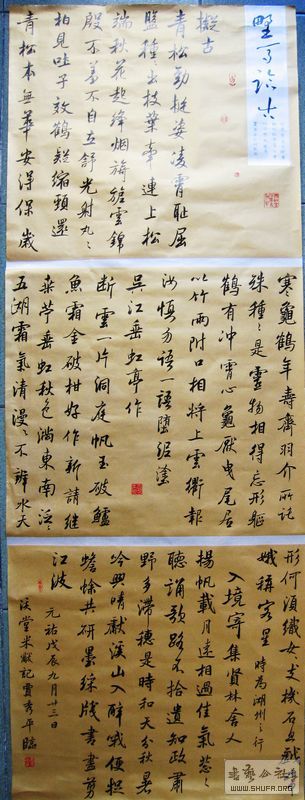 擬古
青松勁挺姿凌霄恥屈
盤種出枝葉牽連上松
端秋花起絳烟旖旎雲錦
殷不羞不自立舒光射丸丸
柏見吐子效鶴疑縮頸還
青松本無華安得保歲
寒龜鶴年壽齊羽介所託
殊種種是靈物相得忘形軀
鶴有冲霄心龜厭曳尾居
以竹兩附口相將上雲衢報
汝慎勿語一語墮泥塗
吳江垂虹亭作
斷雲一片洞庭帆玉破鱸
魚霜金破柑好作新詩繼
桑苧垂虹秋色滿東南泛泛
五湖霜氣清漫漫不辨水天
形何須織女支機石且戲常
娥稱客星 時為湖州之行
入境寄集賢林舍人
揚帆載月遠相過佳氣葱葱
聽誦歌路不拾遺知政肅
野多滯穗是時和天分秋暑
吟興晴獻溪山入醉哦便捉
蟾蜍共研墨綵牋書盡剪
江波
元祐戊辰九月廿三日
溪堂米黻記賈秀平臨
WWW.SHUFA.ORG